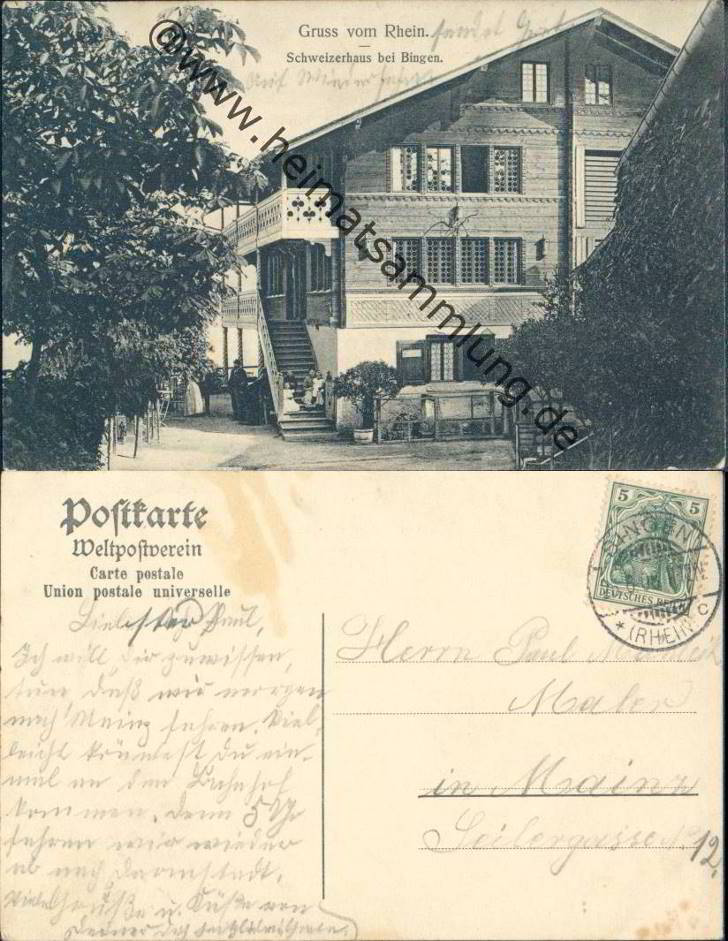 Gruss vom Rhein. sendet
Schweizerhaus bei Bingen.
Auf Wiedersehen
@www.heimatsammlung.de
Postkarte
Weltpostverein
Carte postale
Union postale universelle
5 5
DEUTSCHES REICH
BINGEN
* (RHEIN) c
Liebster Paul,
Ich will dir zuwissen,
tun daß wir morgen
nach Mainz fahren. Viel-
leicht könntest du ein-
mal an den Bahnhof
kommen, denn 5 Uhr
fahren wir wieder
ab nach Darmstadt.
Viele Grüße u. Küße von
Deiner
Herrn Paul
Maler
in Mainz
Seilergasse No 12.